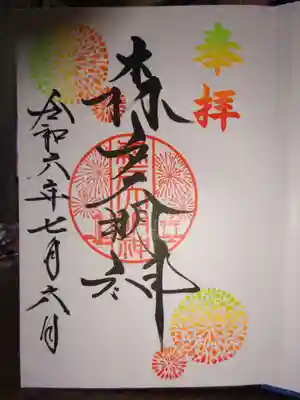 奉拝
森戸大明神
令和六年七月六日